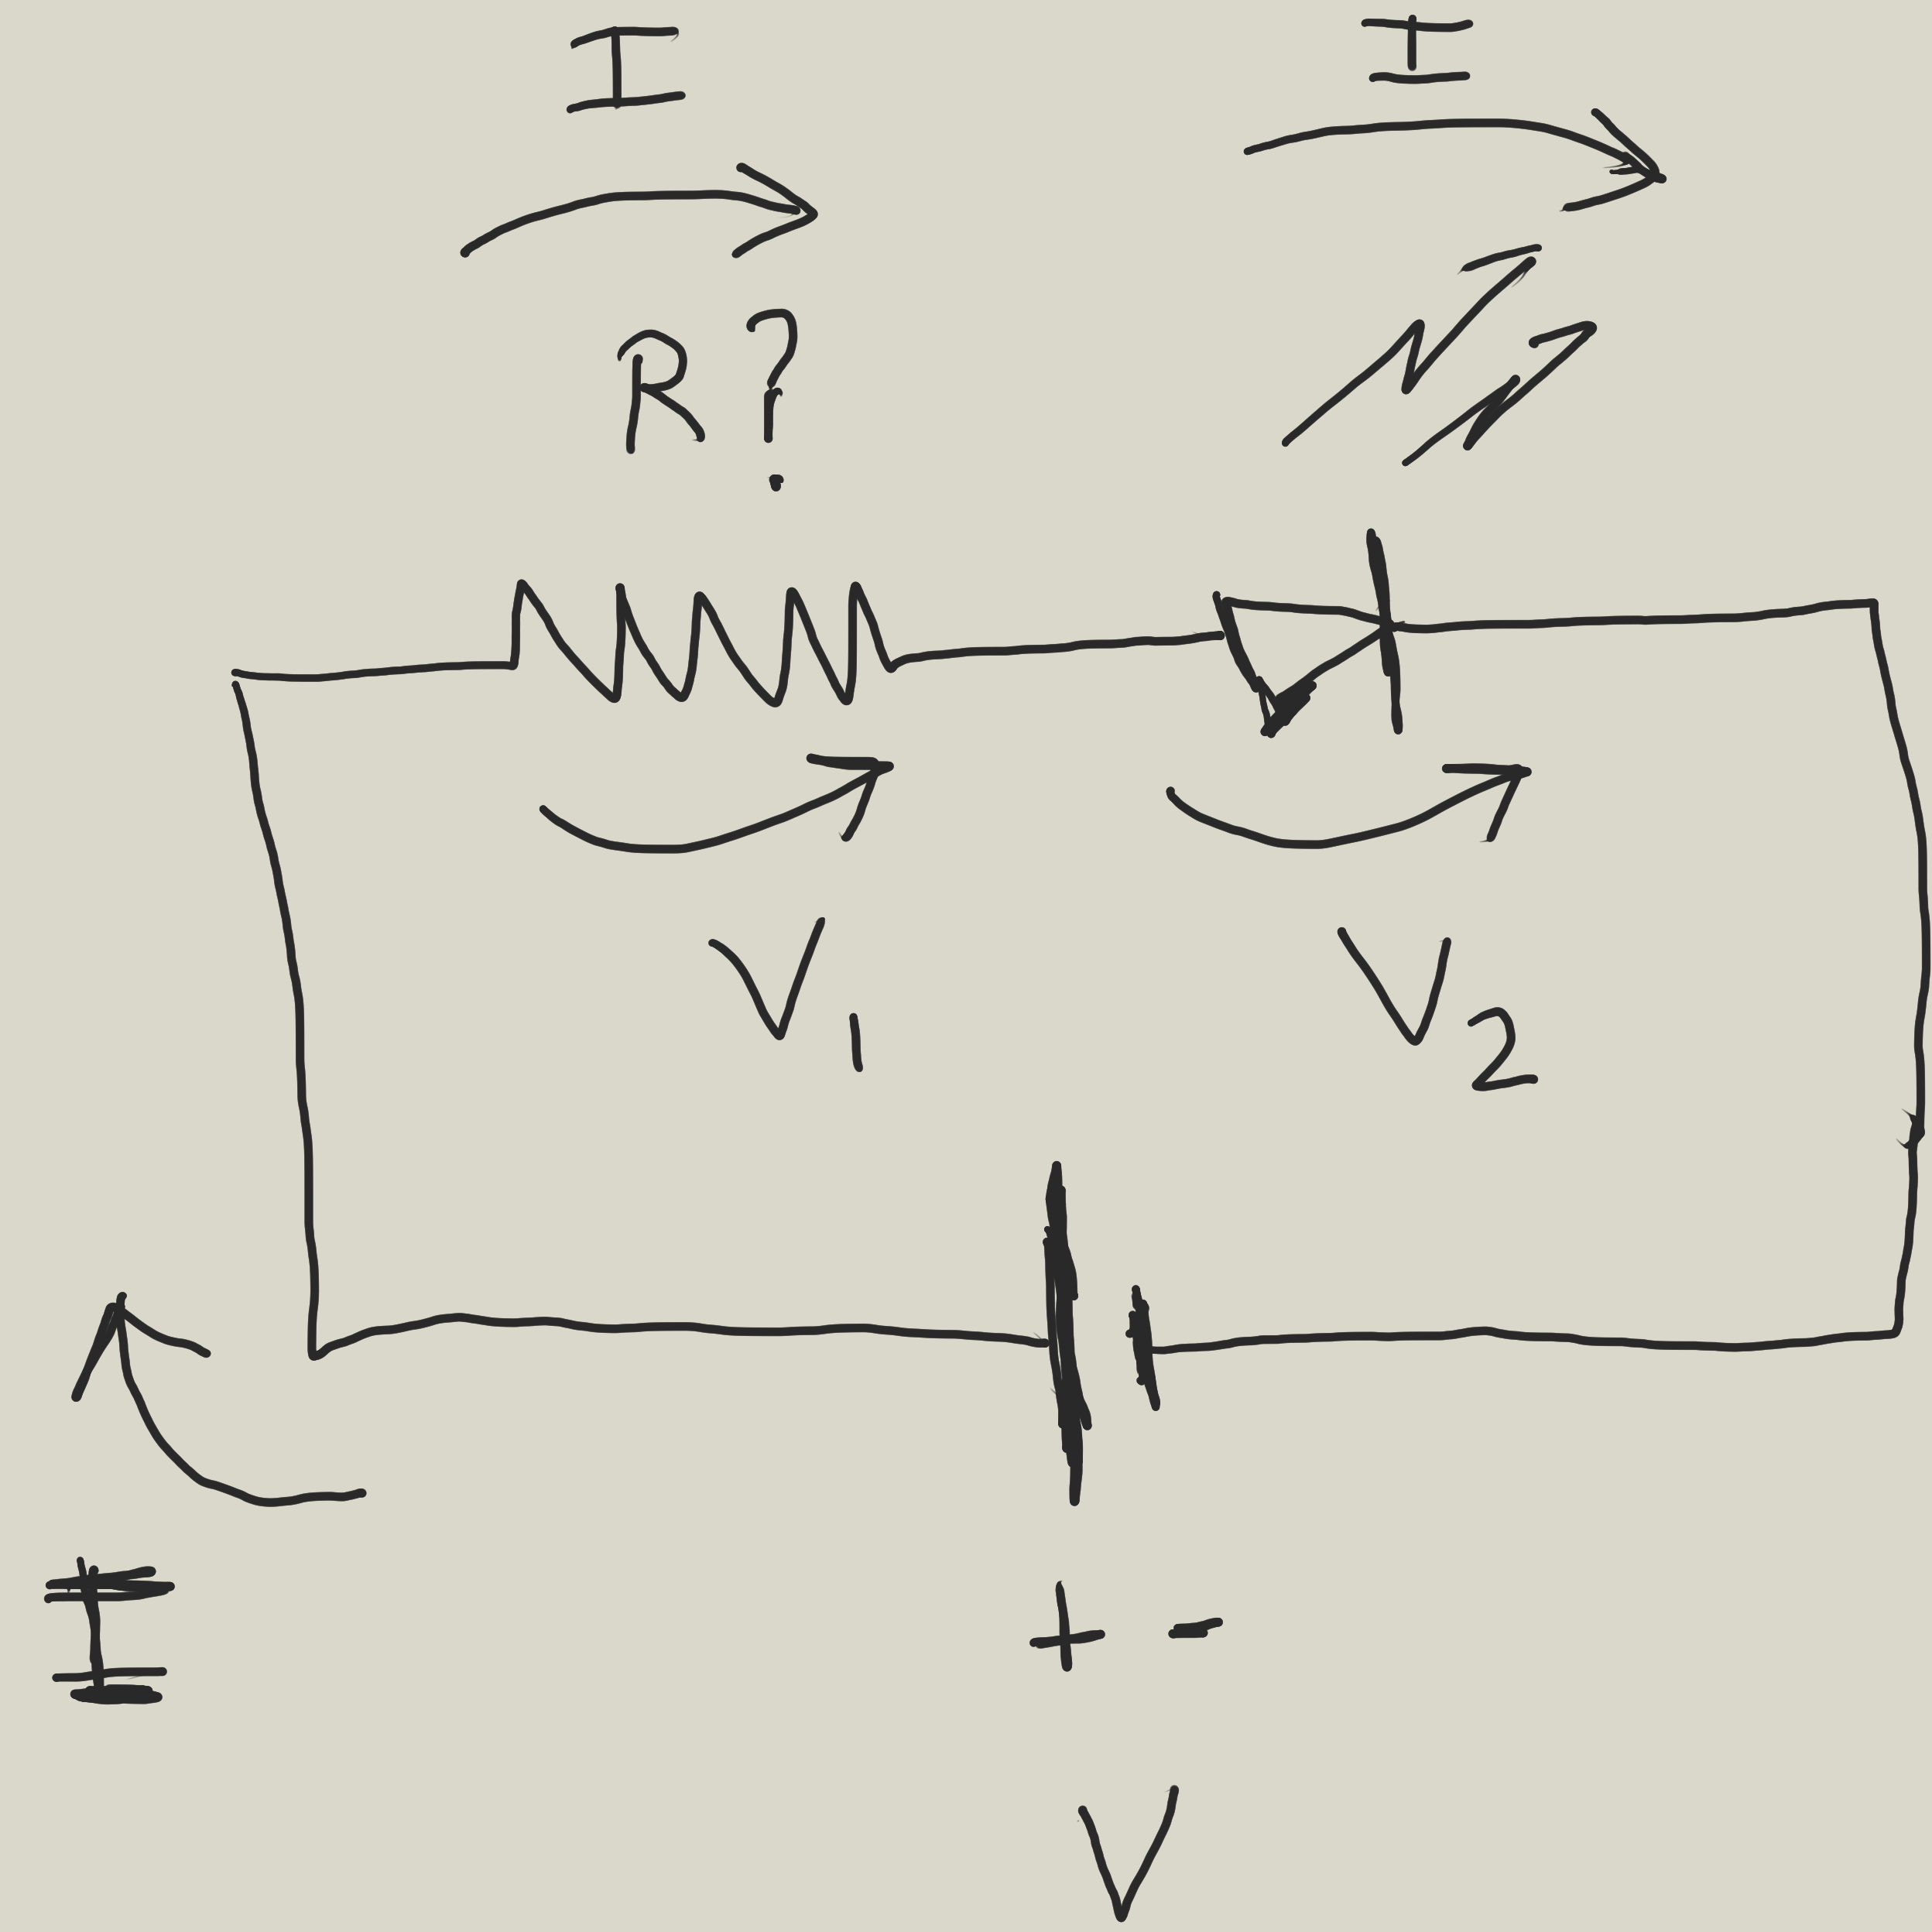 I I
R?
V1 V2
I
+ -
V